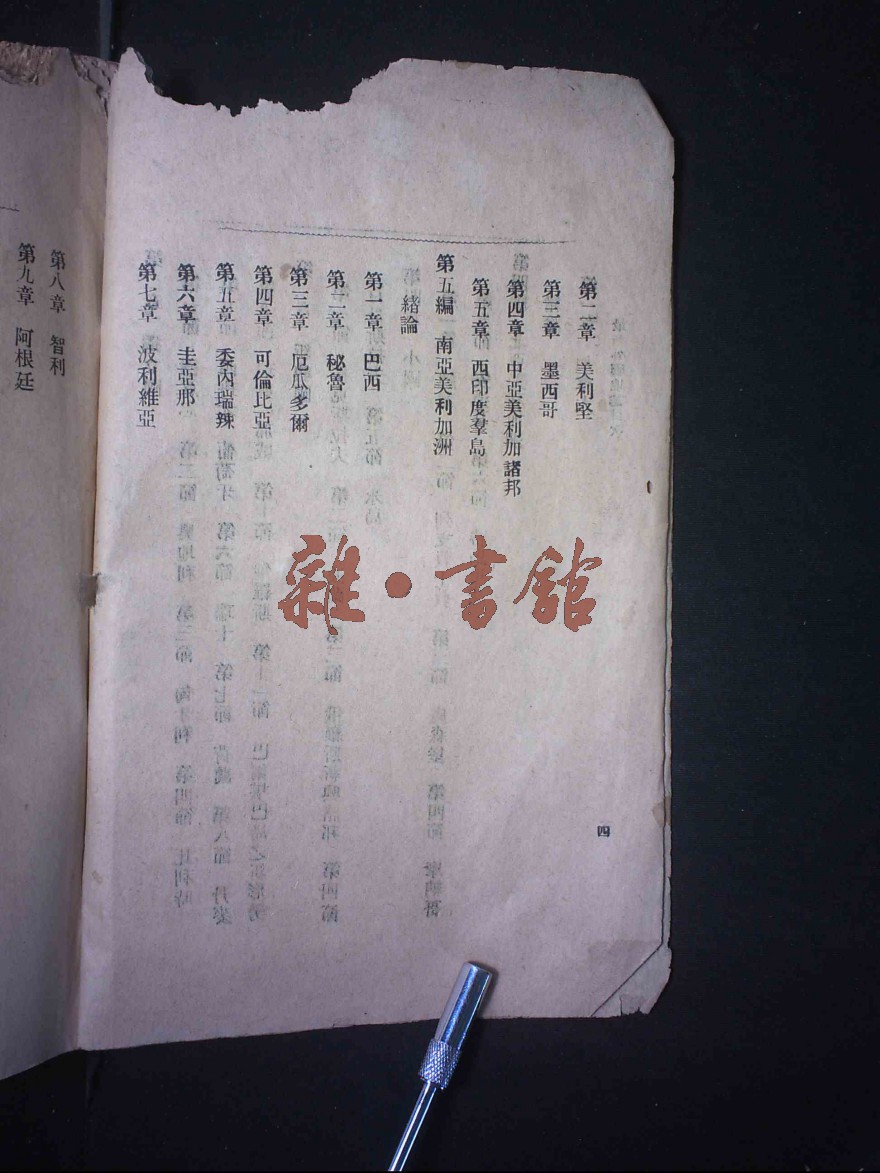 第二章 美利堅
第三章 墨西哥
第四章 中亞美利加諸邦
第五章 西印度羣島
第五編 南亞美利加洲
緒論
第一章 巴西
第二章 秘魯
第三章 厄瓜多爾
第四章 可倫比亞
第五章 委內瑞辣
第六章 圭亞那
第七章 波利維亞
四
第八章 智利
第九章 阿根廷
雜·書館